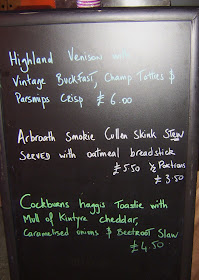 Highland Venison with
Vintage Buckfast, Champ Totties &
Parsnips Crisp £ 6.00
Arbroath Smokie Cullen Skink Stew
Served with oatmeal breadstick
£5.50 ½ Portions
£3.50
Cockburns haggis Toastie with
Mull of Kintyre cheddar,
Caramelised onions & Beetroot Slaw
£4.50